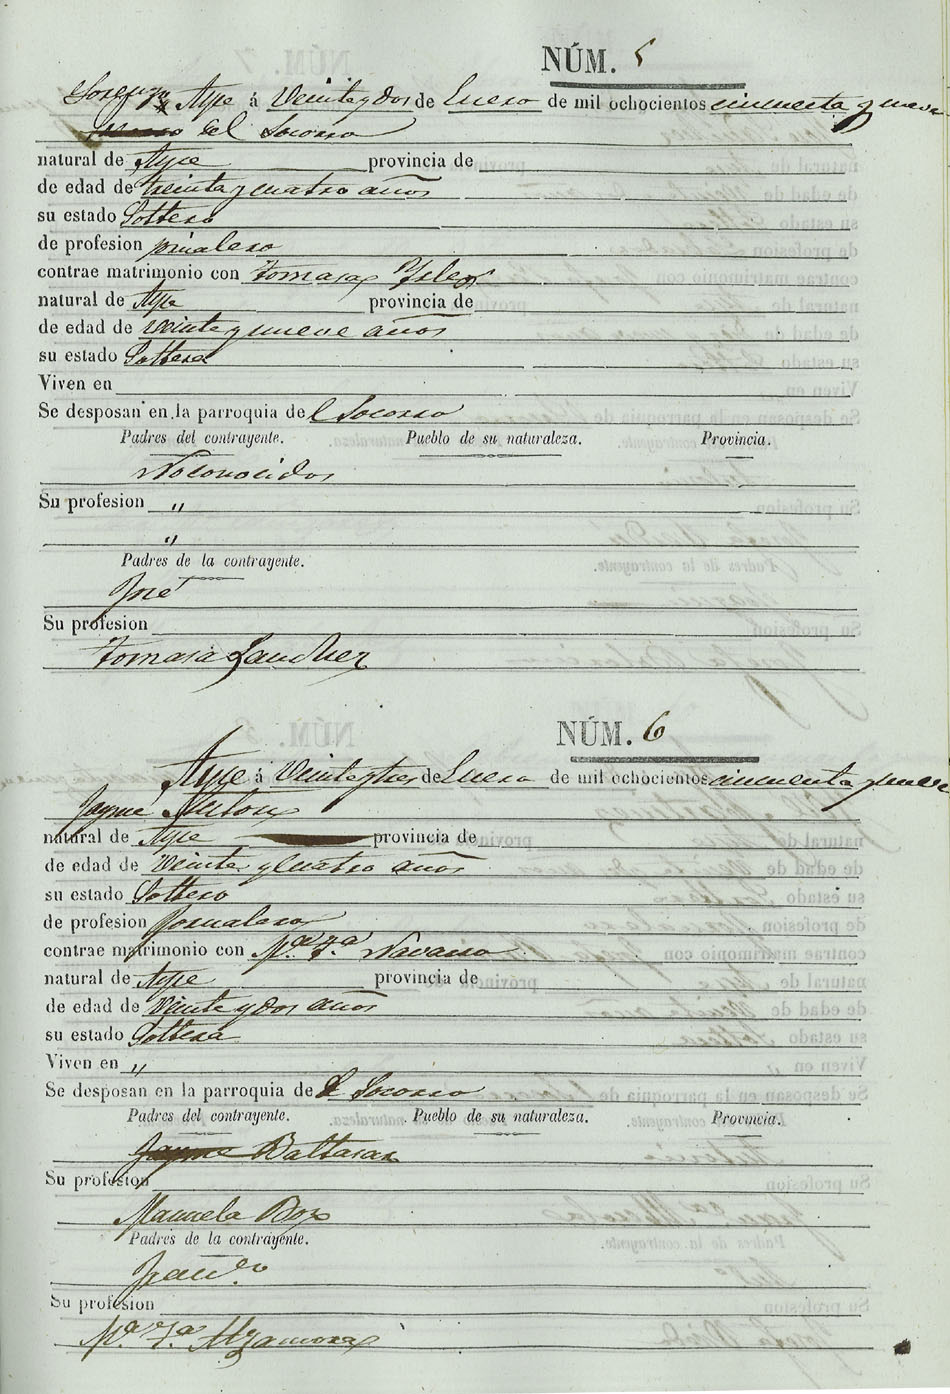 NÚM. 5
Lorenzo Aspe á Veinte y dos de Enero de mil ochocientos cincuenta y nueve
del Socorro
natural de Aspe provincia de
de edad de treinta y cuatro años
su estado Soltero
de profesion jornalero
contrae matrimonio con Tomasa
natural de Aspe provincia de
de edad de veinte y nueve años
su estado Soltera
Viven en
Se desposan en la parroquia del Socorro
Padres del contrayente. Pueblo de su naturaleza. Provincia.
No conocidos
Su profesion "
"
Padres de la contrayente.
José
Su profesion
Tomasa Sanchez
NÚM. 6
Aspe á Veinte y tres de Enero de mil ochocientos cincuenta y nueve
Jayme Anton
natural de Aspe provincia de
de edad de Veinte y Cuatro años
su estado Soltero
de profesion Jornalero
contrae matrimonio con Mª Tª Navarro
natural de Aspe provincia de
de edad de Veinte y dos años
su estado Soltera
Viven en "
Se desposan en la parroquia de Socorro
Padres del contrayente. Pueblo de su naturaleza. Provincia.
Baltasar
Su profesion
Manuela
Padres de la contrayente.
Franco
Su profesion
Mª Tª Alzamora